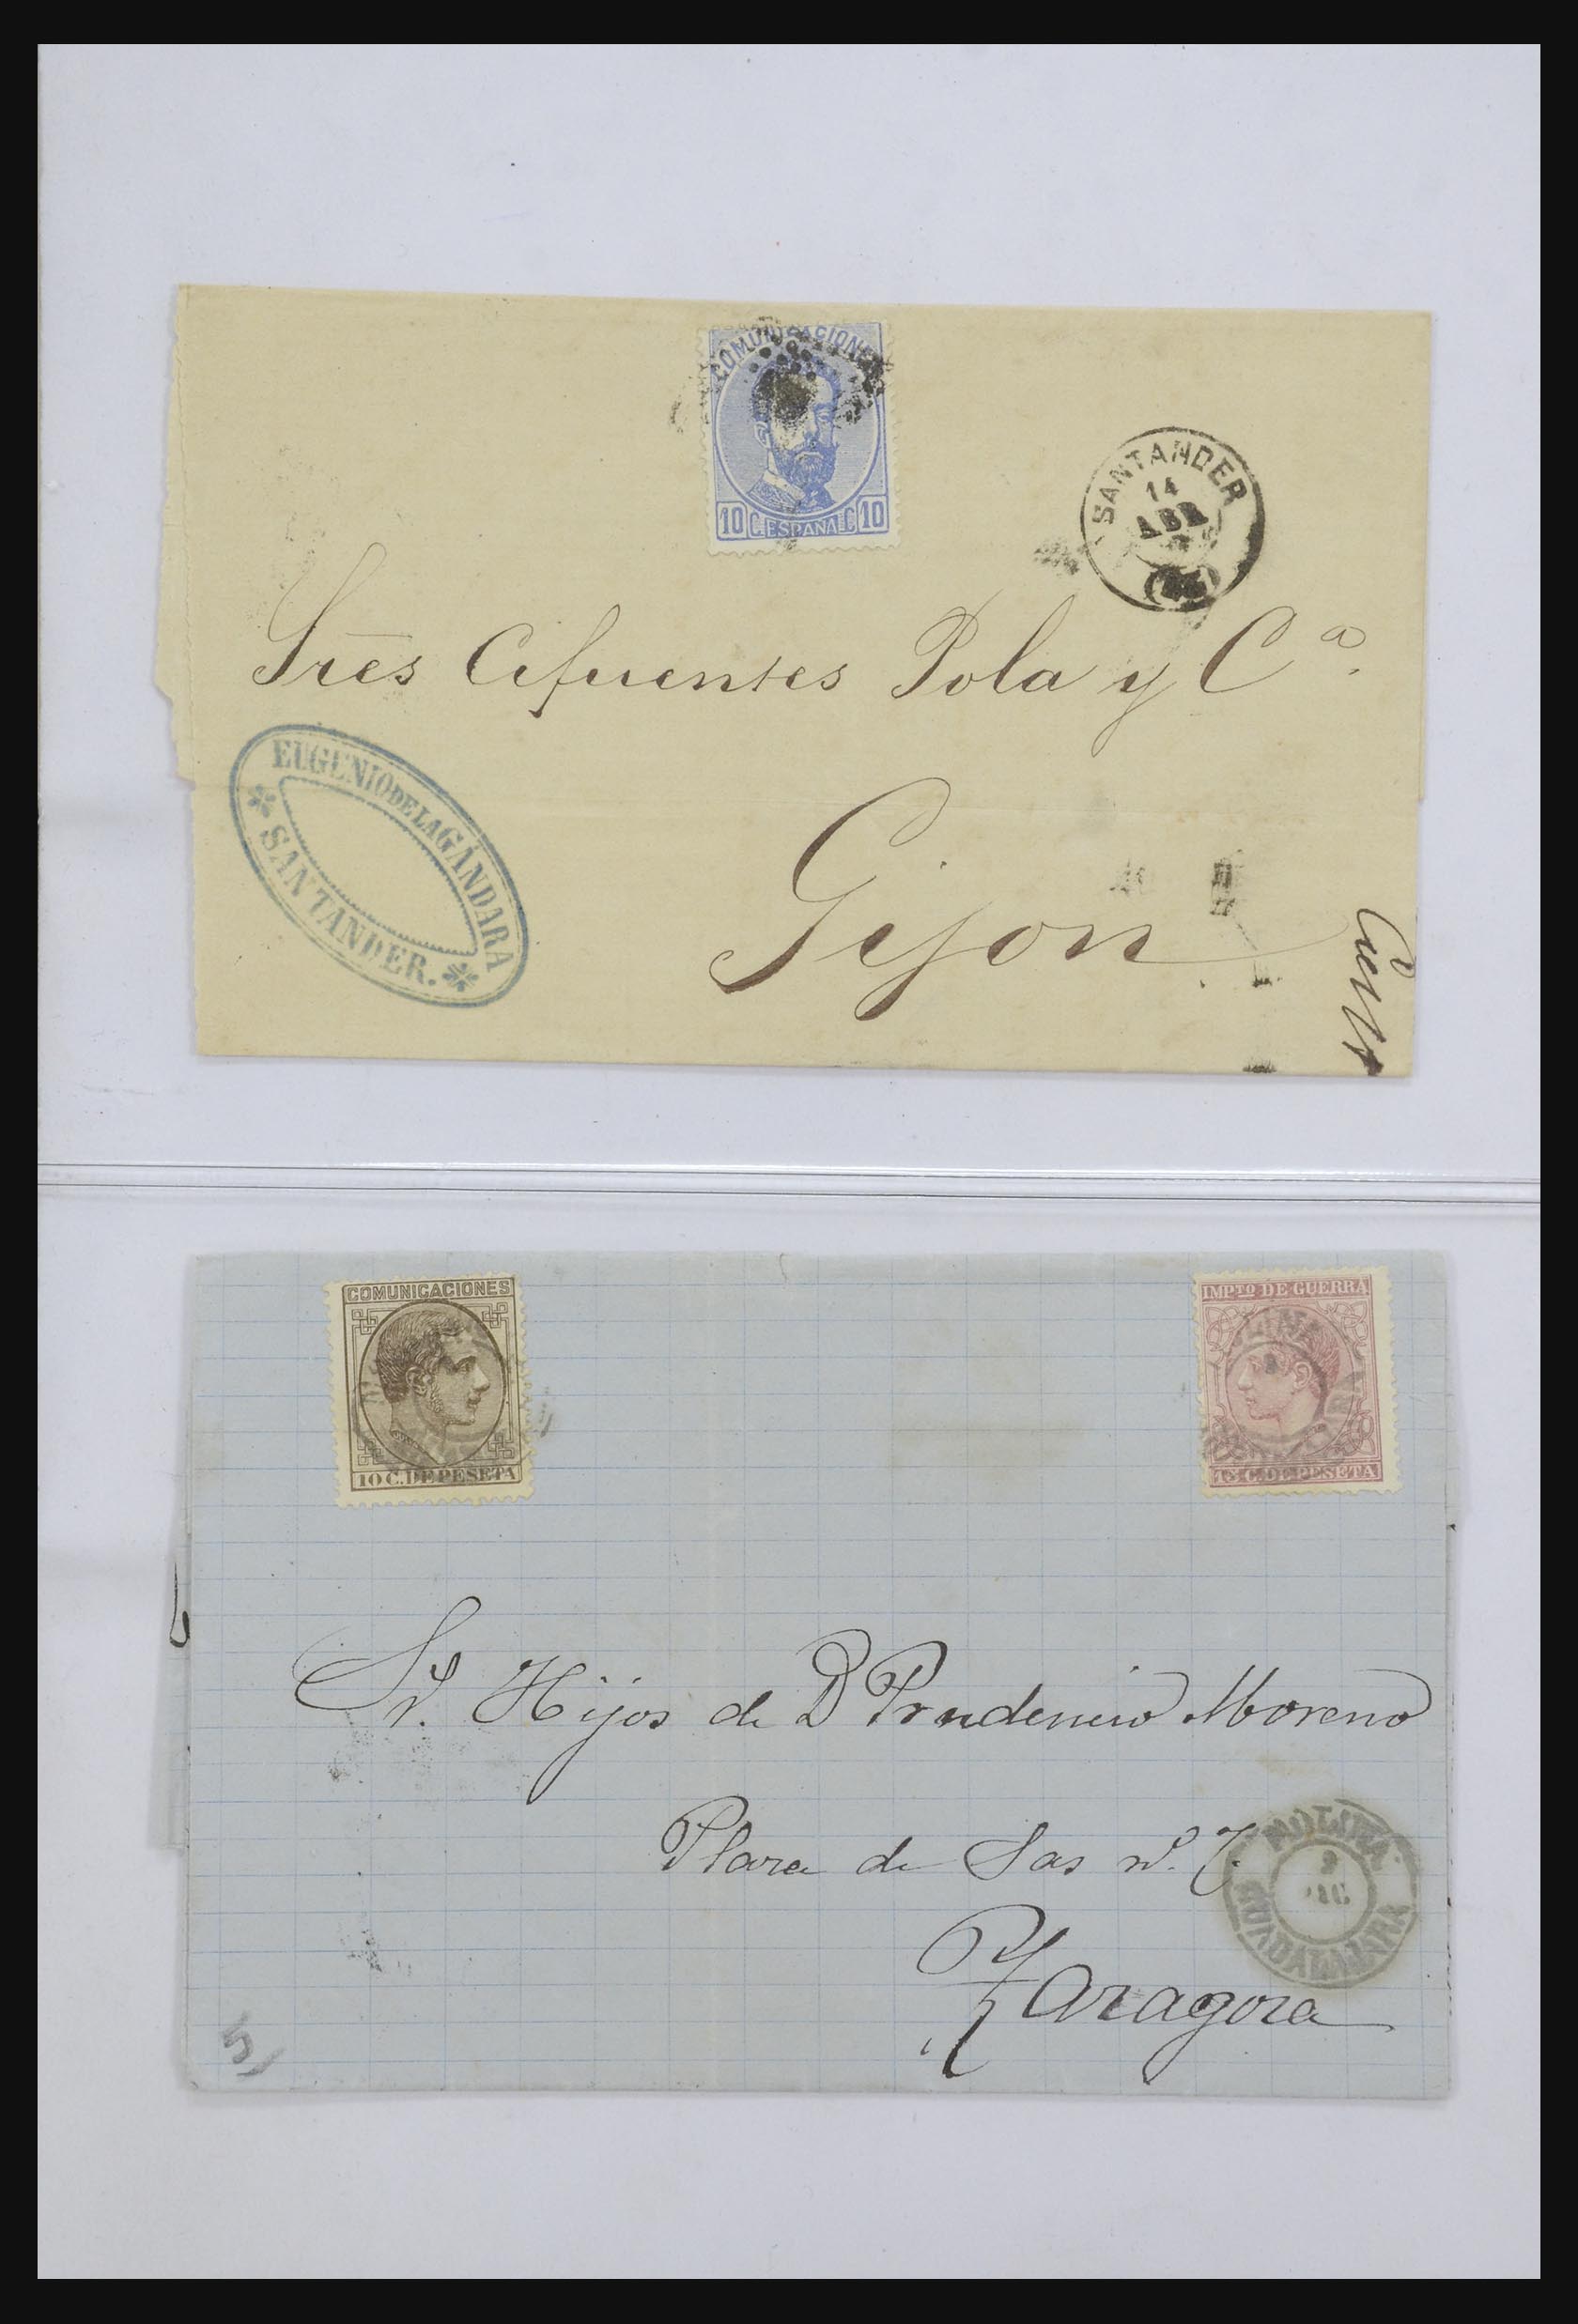 COMUNICACIONES
10 C. ESPAÑA. C. 10
SANTANDER
14
ABR
Sres Cifuentes Pola y Cª.
EUGENIO DE LA GÁNDARA
SANTANDER.
Gijon
COMUNICACIONES
10 C. DE PESETA
IMPTO DE GUERRA
15 C. DE PESETA
Hijos de D Prudencio Moreno
Plaza de Sas nº. 7.
MOLINA
2
DIC
GUADALAJARA
Zaragoza